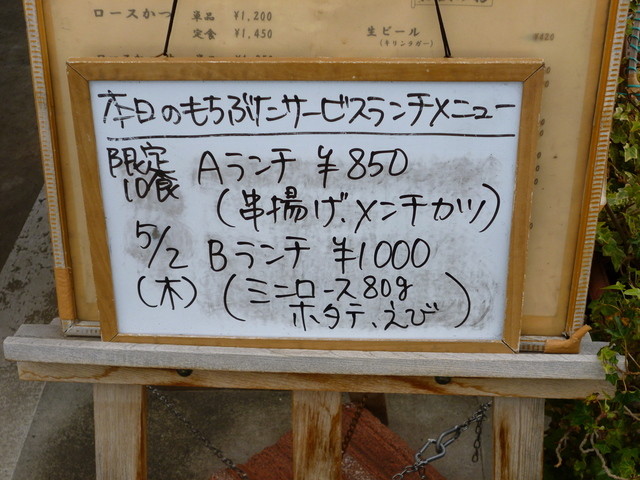 ロースかつ 単品 ¥1,200
定食 ¥1,450
生ビール
(キリンラガー)
本日のもちぶたサービスランチメニュー
限定
10食
Aランチ ¥850
(串揚げ、メンチカツ)
5/2
(木)
Bランチ ¥1000
(ミニロース80g
ホタテ、えび)